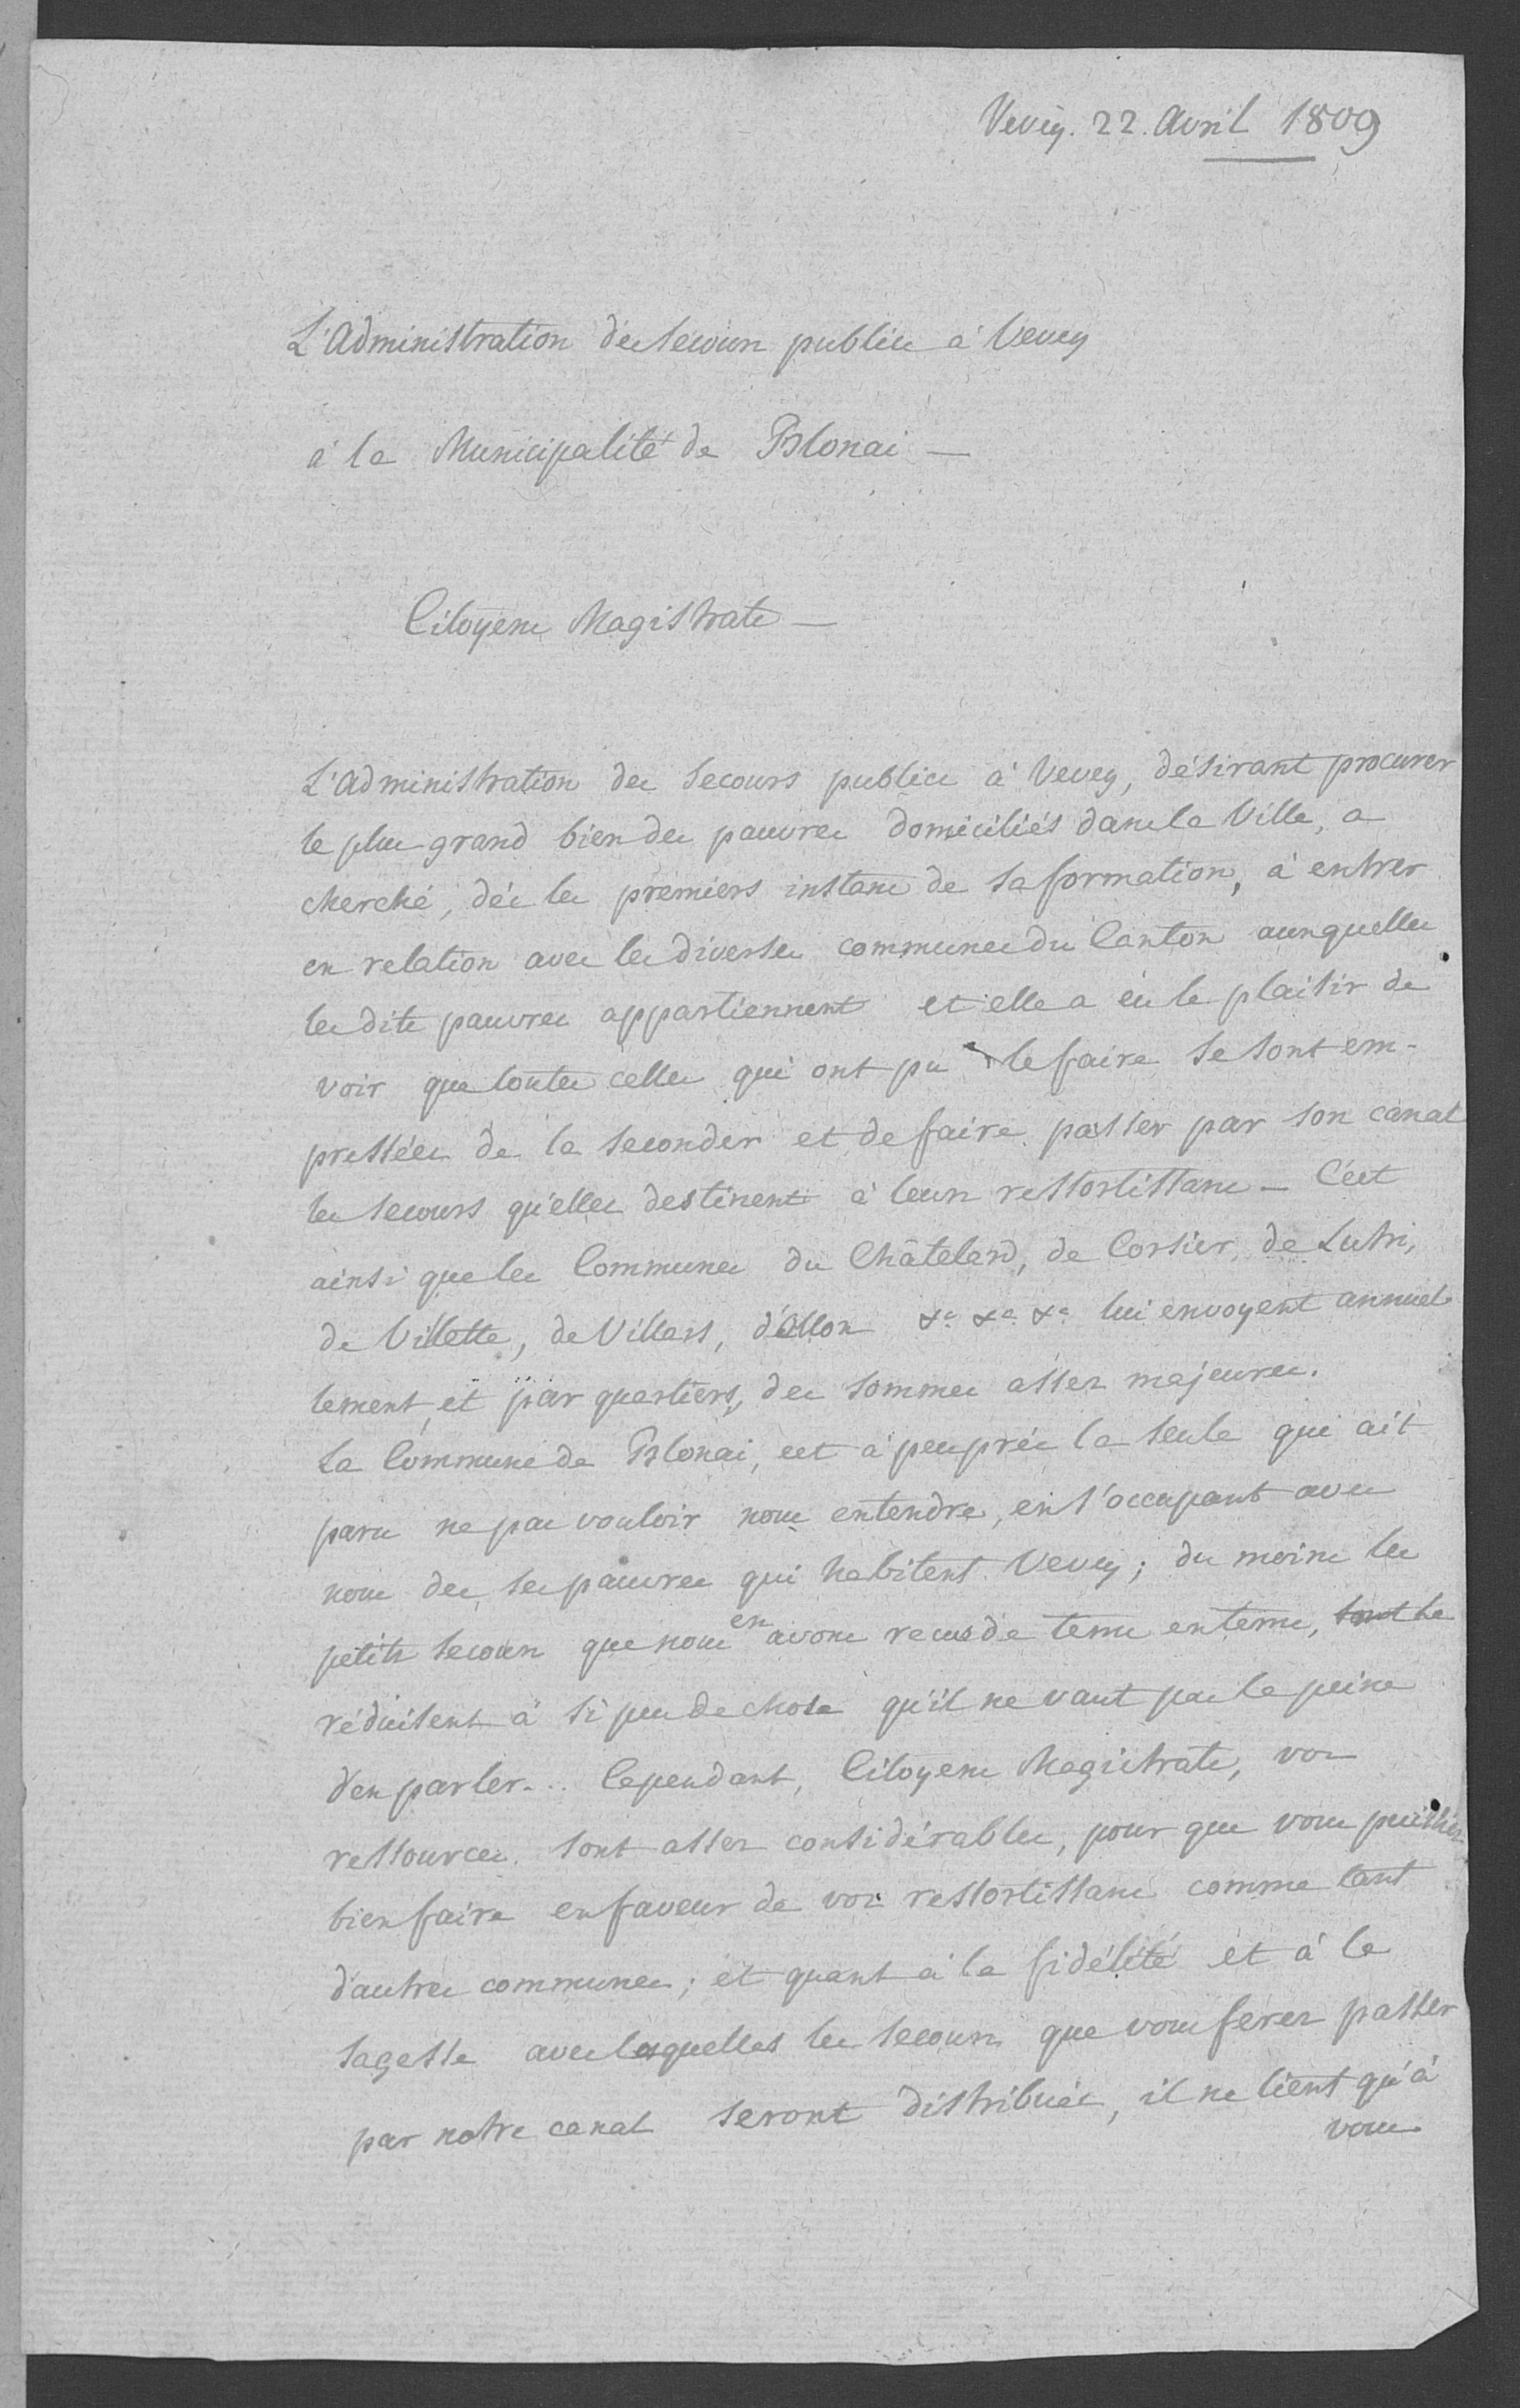 Vevey. 22. Avril 1809
L'Administration des Secours publics à Vevey
à la Municipalité de Blonai —
Citoyens Magistrats —
L'Administration des Secours publics à Vevey, désirant procurer
le plus grand bien des pauvres domiciliés dans la Ville, a
cherché, dès les premiers instans de sa formation, à entrer
en relation avec les diverses communes du Canton auxquelles
les dits pauvres appartiennent et elle a eû le plaisir de
voir que toutes celles qui ont pu le faire se sont em-
pressées de la seconder et de faire passer par son canal
les secours qu'elles destinent à leurs ressortissans — C'est
ainsi que les Communes du Châtelard, de Corsier, de Lutri,
de Villette, de Villars, d'Ollon &c &c &c lui envoyent annuel
lement, et par quartiers, des sommes assez majeures.
La Commune de Blonai, est à peu près la seule qui ait
paru ne pas vouloir nous entendre, en s'occupant avec
nous des ses pauvres qui habitent Vevey; du moins les
petits secours que nous en avons recus de tems en tems, sont se
réduisent à si peu de chose qu'il ne vaut pas la peine
d'en parler... Cependant, Citoyens Magistrats, vos
ressources sont assez considérables, pour que vous puissiez
bien faire en faveur de vos ressortissans comme tant
d'autres communes; et quant à la fidélité et à la
sagesse avec lesquelles les secours que vous ferez passer
par notre canal seront distribués, il ne tient qu'à
vous